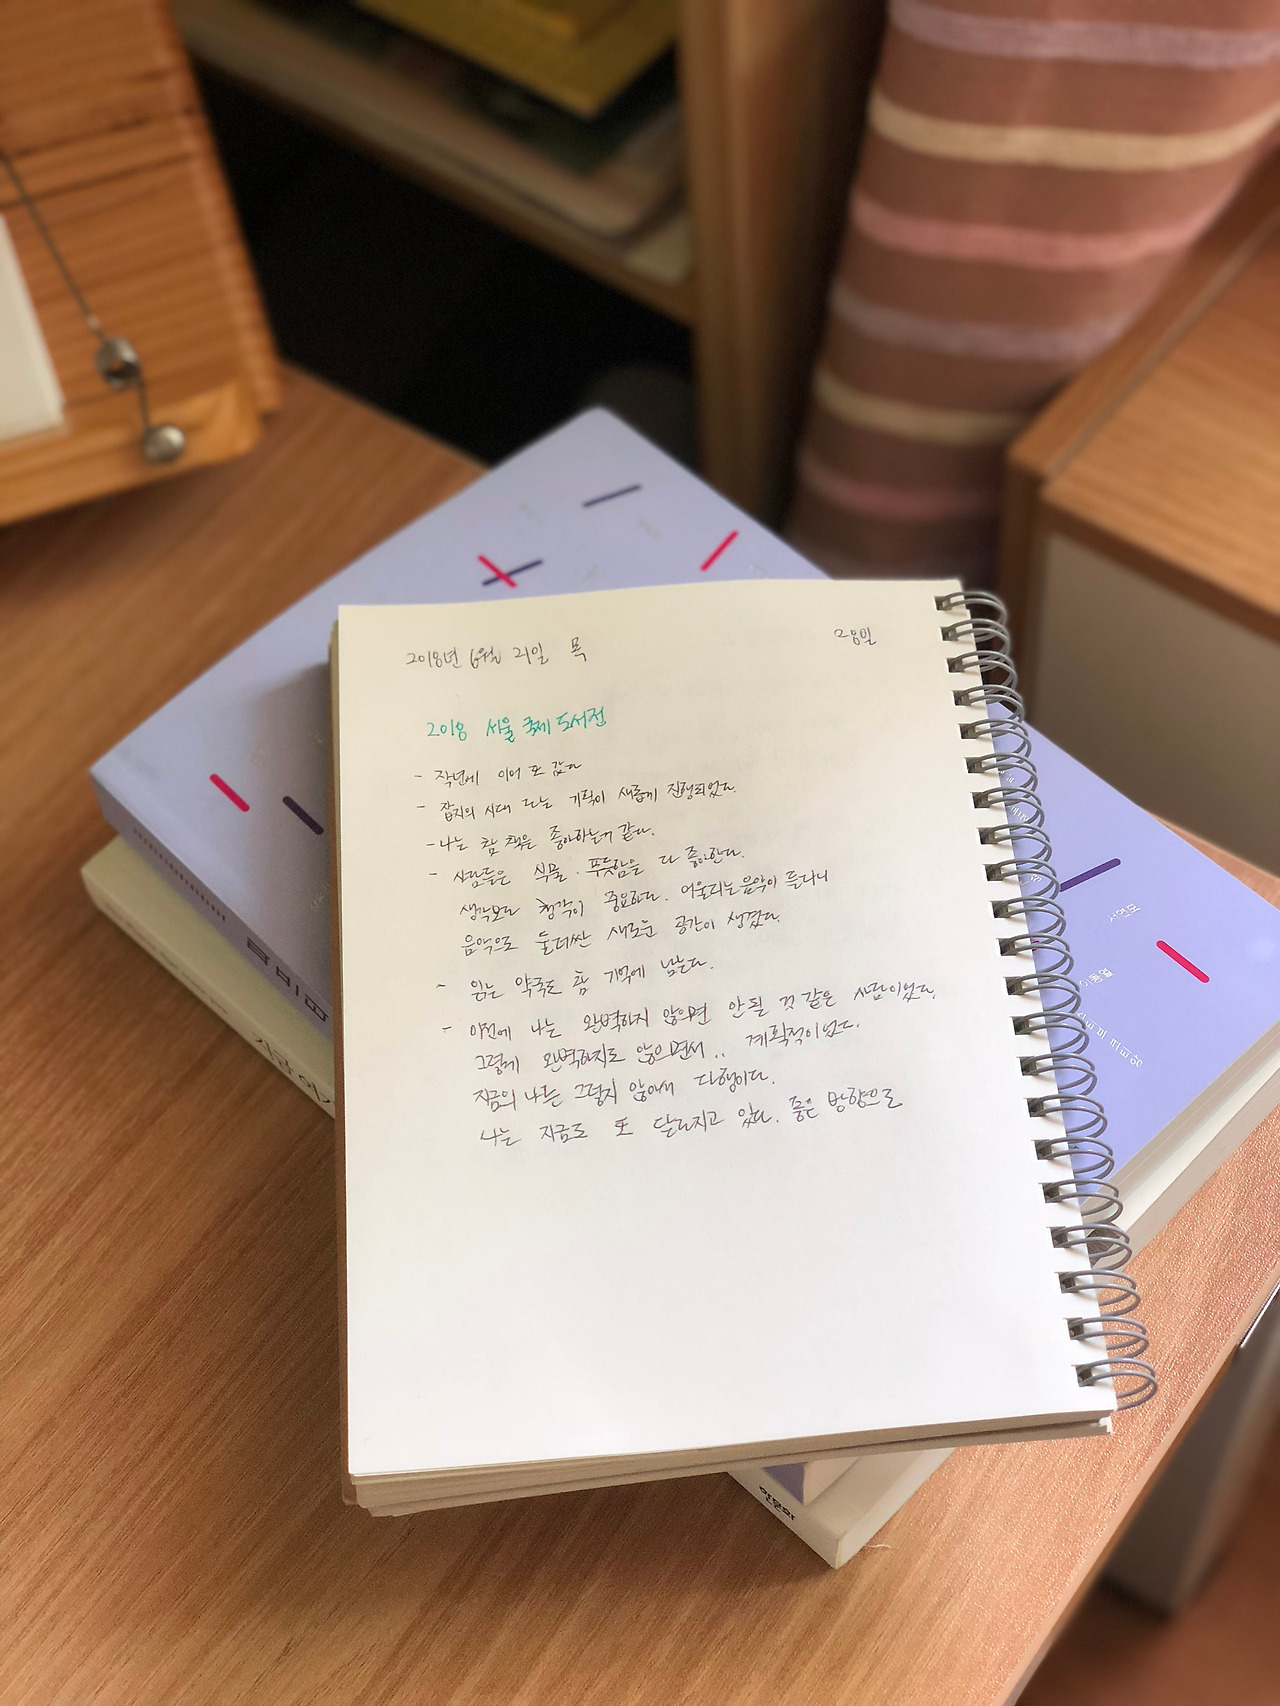 2018년 6월 21일 목
28일
2018 서울 국제 도서전
- 작년에 이어 또 갔다
- 잡지의 시대 라는 기획이 새롭게 진행되었다.
- 나는 참 책을 좋아하는거 같다.
- 사람들은 식물. 푸릇함을 다 좋아한다.
생각보다 청각이 중요하다. 어울리는 음악이 들리니
음악으로 둘러싼 새로운 공간이 생겼다.
- 읽는 약국도 참 기억에 남는다.
- 이전에 나는 완벽하지 않으면 안될 것 같은 사람이었다.
그렇게 완벽하지도 않으면서.. 계획적이었다.
지금의 나는 그렇지 않아서 다행이다.
나는 지금도 또 달라지고 있다. 좋은 방향으로
서현모
이동열